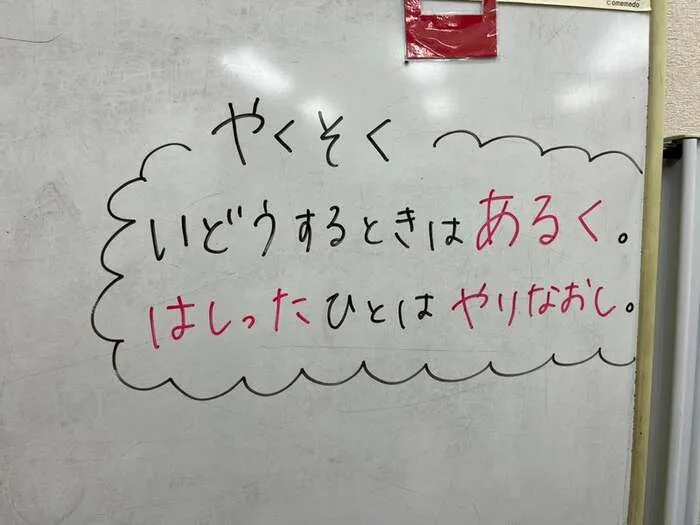 ©omemedo
やくそく
いどうするときはあるく。
はしったひとはやりなおし。